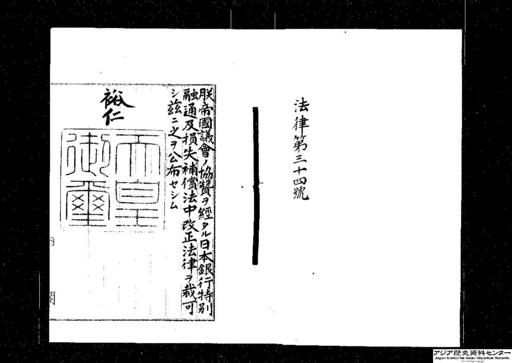 法律第三十四號
朕帝國議會ノ協賛ヲ經タル日本銀行特別
融通及損失補償法中改正法律ヲ裁可
シ茲ニ之ヲ公布セシム
裕仁
天皇
御璽
内閣
アジア歴史資料センター
Japan Center for Asian Historical Records